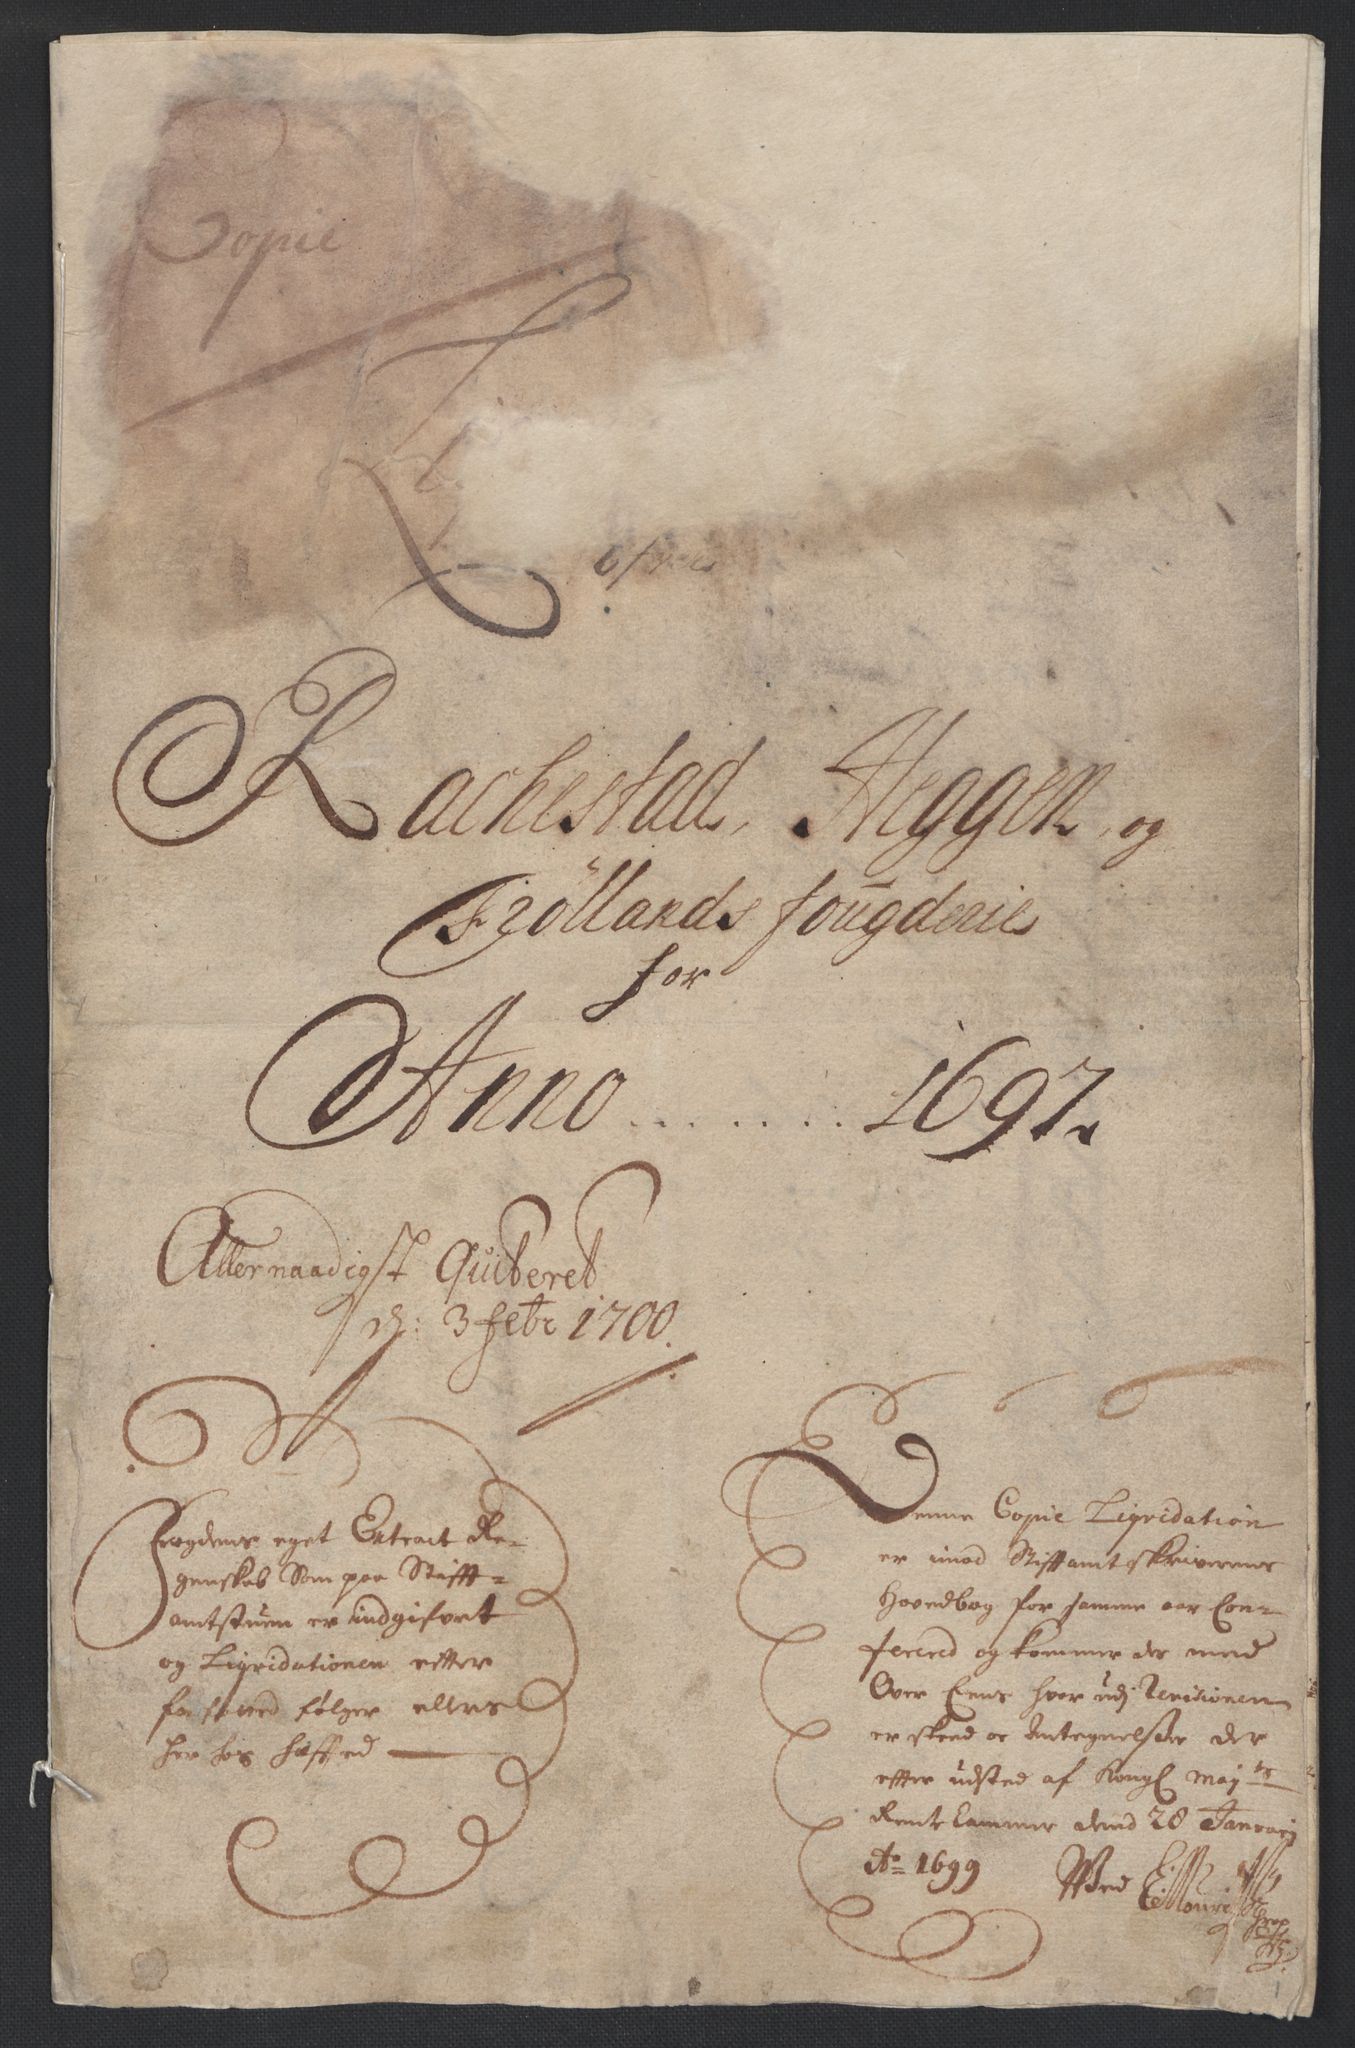 Copie
Rachestad, Heggen, og
Fröllands fougderie
for
Anno ....... 1697.
Allernaadigst Quiteret
d: 3 febr 1700.
Fogdens eget Extract Re-
genskab Som paa Stifft-
amtstuen er indgifvet
og Liqvidationen effter
følger ellers
her hos hæfted
Denne Copie Liqvidation
er imod Stiftamtskriverens
Hovedbog for samme aar Con-
fererd og kommer der med
Over Eens hvor udj Revisionen
er skeed oc Antegnelser der
effter udsted af Kongl May ts
Rente Cammer dend 28 Januarj
Ao 1699